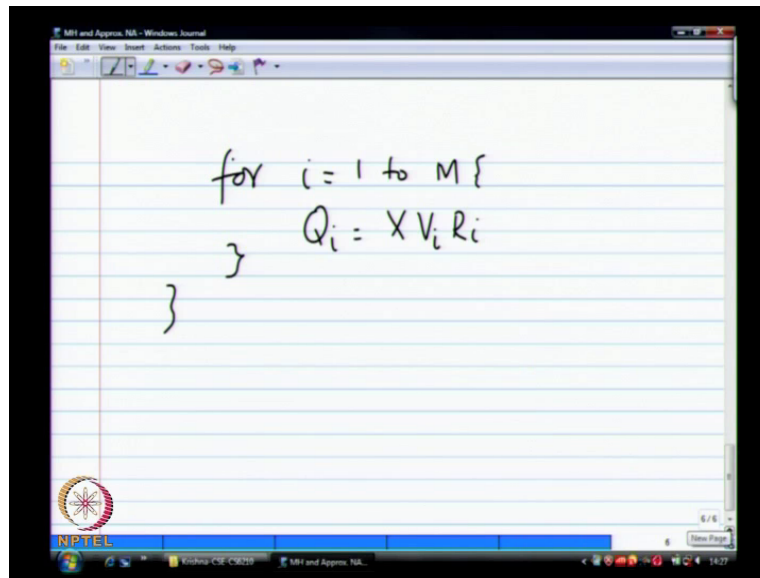 MH and Approx. NA - Windows Journal
File Edit View Insert Actions Tools Help
for i = 1 to M {
Qi = X Vi Ri
}
}
6/6
6
New Page
NPTEL
Krishna-CSE-CS6210
MH and Approx. NA...
14:27